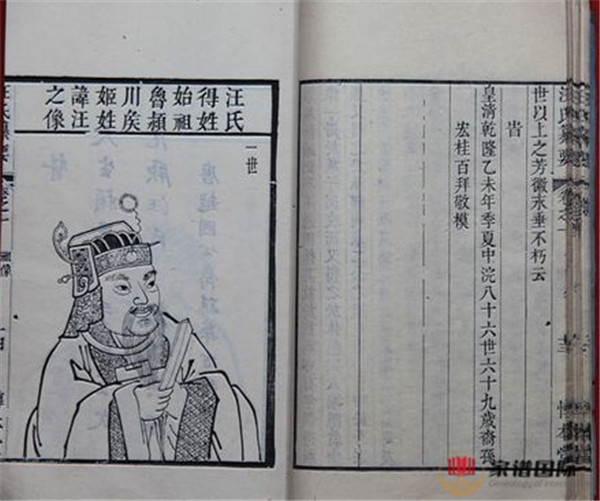 世以上之芳徽永垂不朽云
旹
皇清乾隆乙未年季夏中浣八十六世六十九歲裔孫
宏桂百拜敬模
汪氏
得姓
始祖
魯潁
川矦
姬姓
諱汪
之像
一世
像
家谱国际
Genealogy of Inter